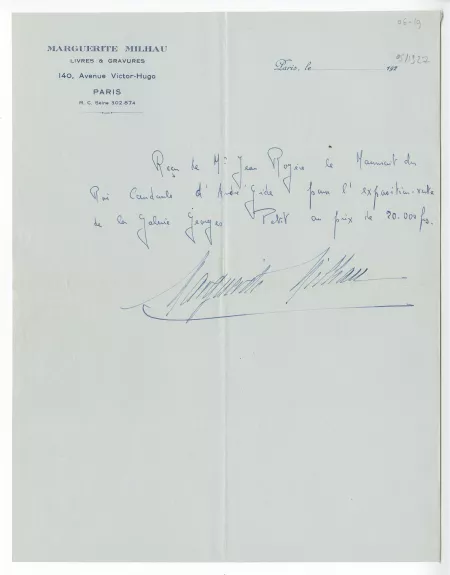 MARGUERITE MILHAU
LIVRES & GRAVURES
140, Avenue Victor-Hugo
PARIS
R. C. Seine 302.574
Paris, le 192
Reçu de Mr Jean Royère le Manuscrit du
Roi Candaule d'André Gide pour l'exposition-vente
de la Galerie Georges Petit au prix de 20.000 frs.
Marguerite Milhau